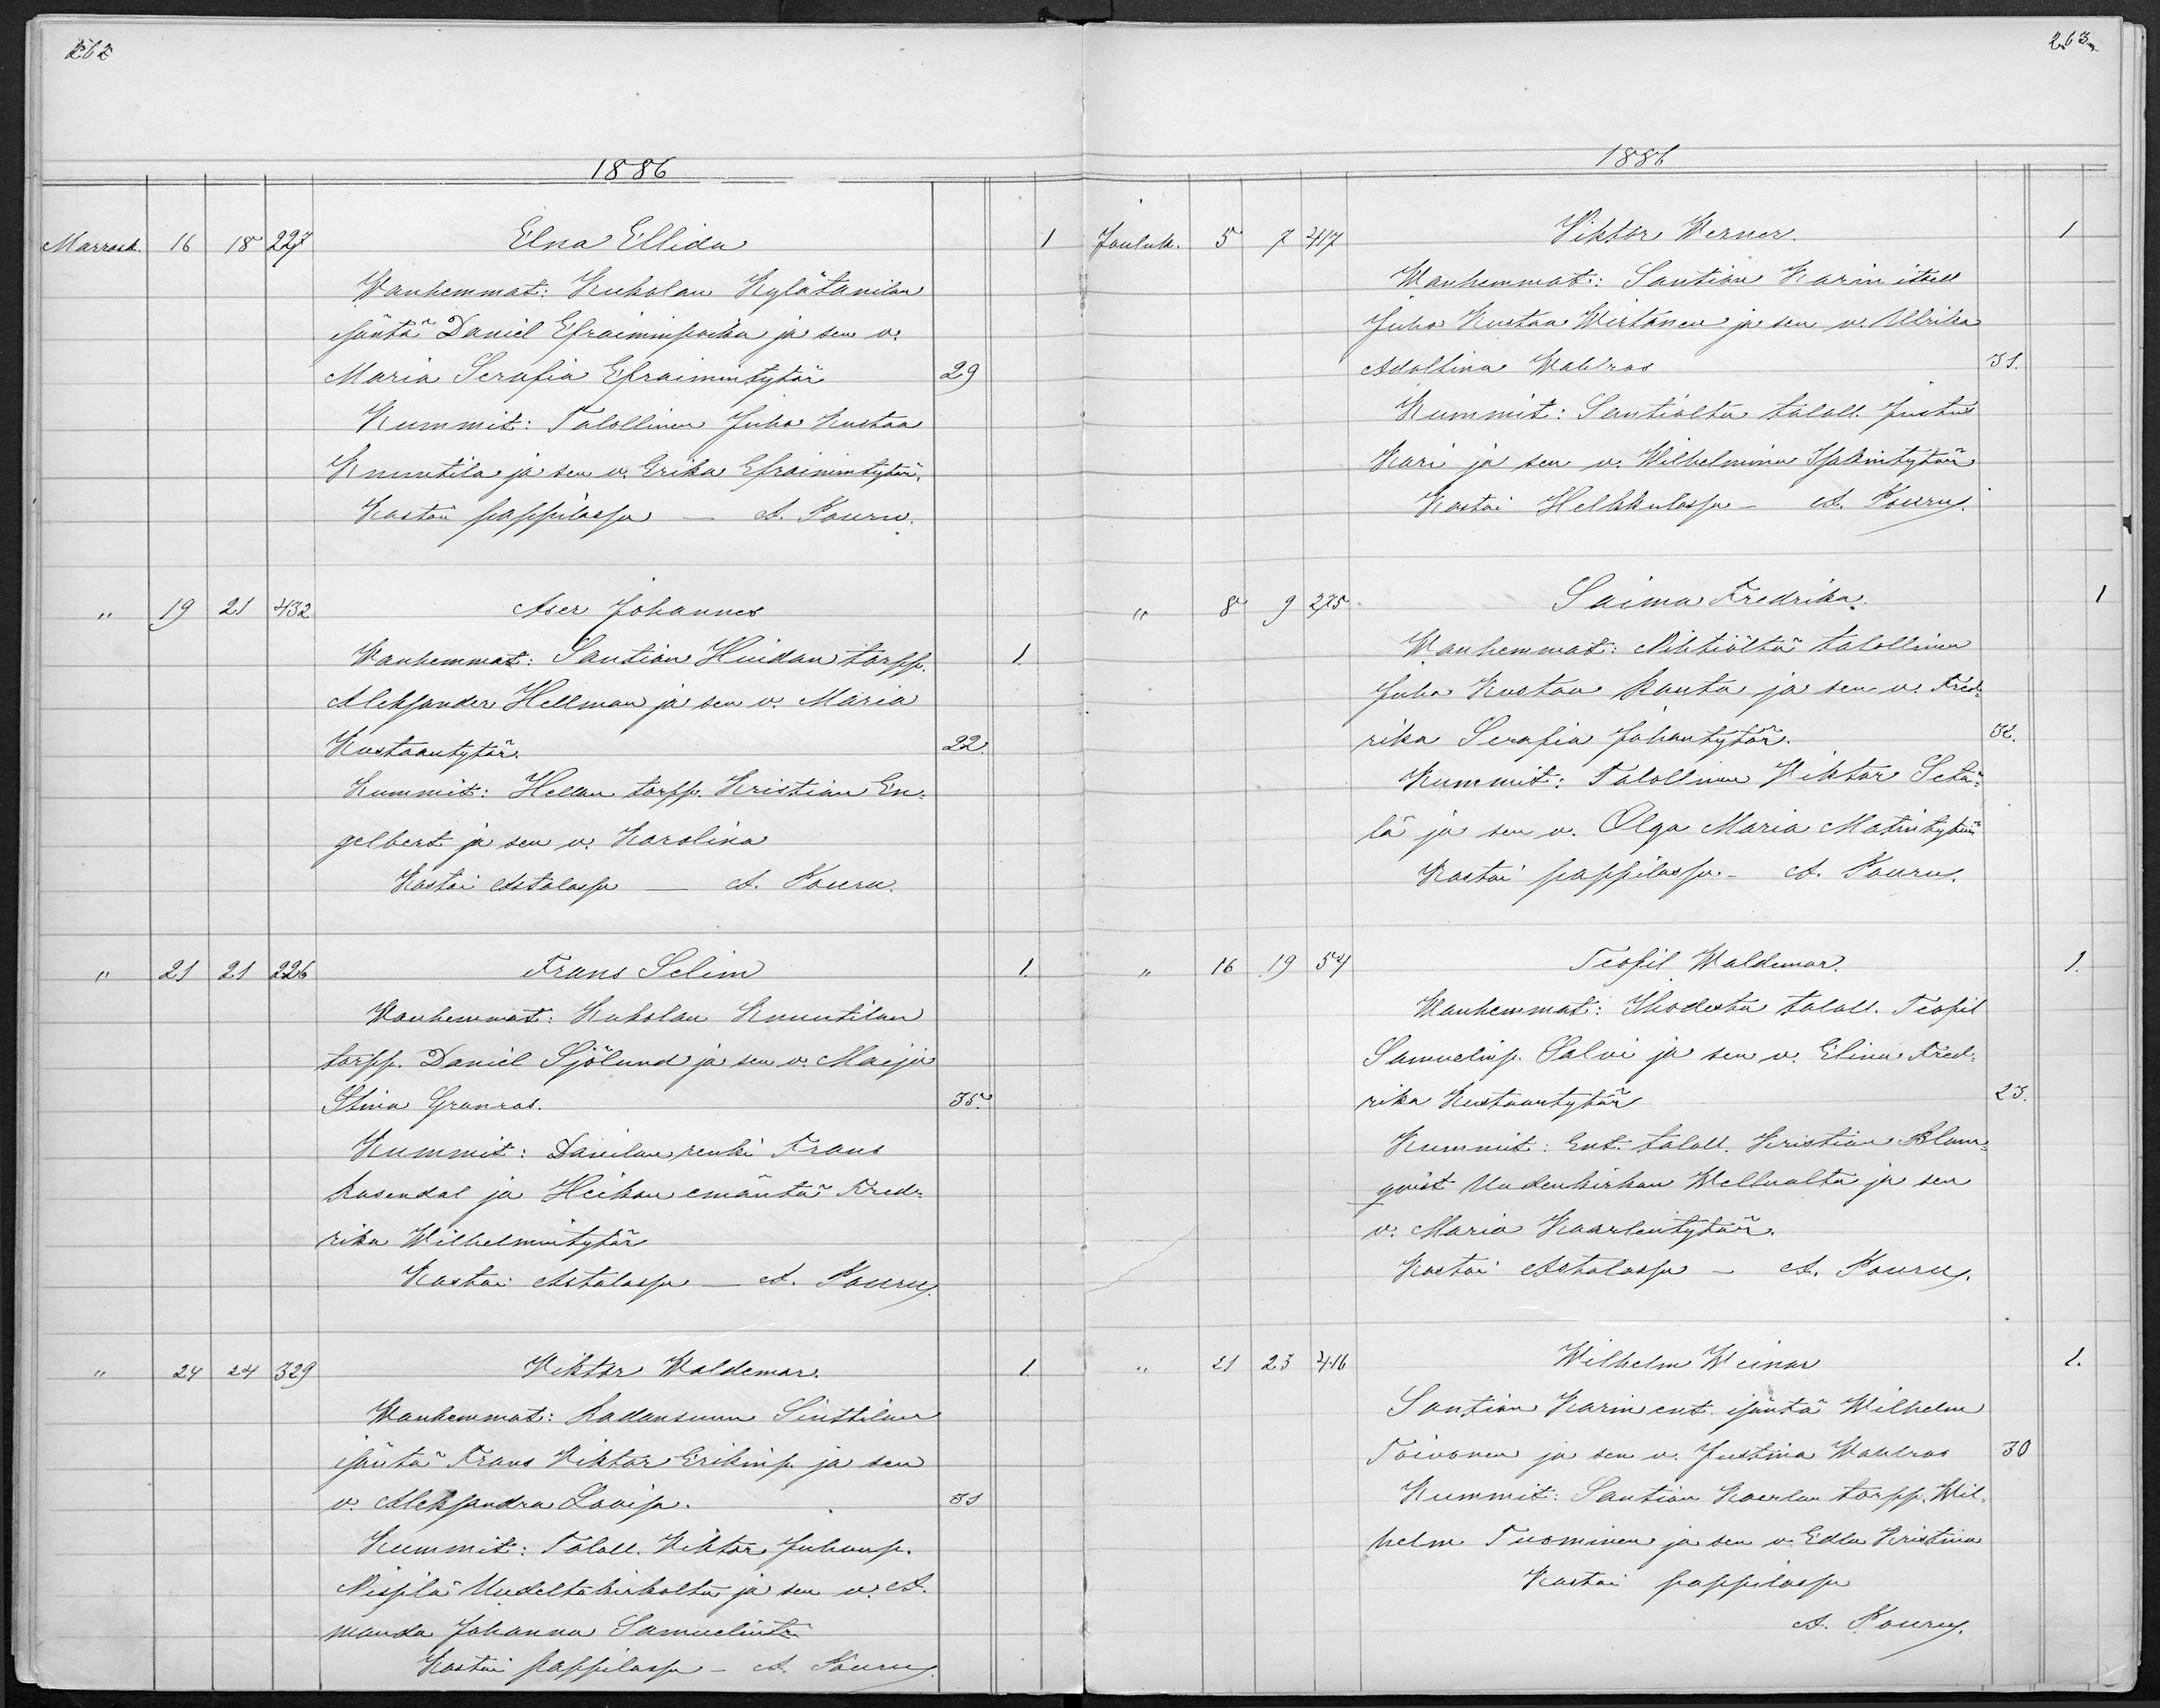 262
1886
Marrask. 16 18 227 Elna Ellida 1
Wanhemmat: Kukolan Kylätanilan
isäntä Daniel Efraiminpoika ja sen v.
Maria Serafia Efraimintytär 29
Kummit: Talollinen Juho Kustaa
Knuutila ja sen v. Erika Efraimintytär.
Kastoi pappilassa — A. Pouru.
" 19 21 432 Aser Johannes
Wanhemmat: Santion Huidan torpp. 1.
Aleksander Hellman ja sen v. Maria
Kustaantytär. 22.
Kummit: Hellan torpp. Kristian En-
gelbert ja sen v. Karolina
Kastoi Astalassa — A. Pouru.
" 21 21 226 Frans Selim 1.
Wanhemmat: Kukolan Knuutilan
torpp. Daniel Sjölund ja sen v. Maija
Stina Granros. 35.
Kummit: Danilan renki Frans
Rosendal ja Heikan emäntä Fred-
rika Wilhelmintytär
Kastoi Astalassa — A. Pouru.
" 24 24 329 Viktor Waldemar. 1.
Wanhemmat: Radansuun Sinttilan
isäntä Frans Viktor Erikinp. ja sen
v. Aleksandra Lovisa. 31
Kummit: Taloll. Viktor Juhanp.
Nispilä Uudeltakirkolta ja sen v. A-
manda Johanna Samuelintr
Kastoi pappilassa — A. Pouru.
263.
1886
Jouluk. 5 7 417 Viktor Werner. 1
Wanhemmat: Santion Karin itsell
Juho Kustaa Wirtanen ja sen v. Ulrika
Adolfina Wahlros 31.
Kummit: Santiolta taloll. Justus
Kari ja sen v. Wilhelmina Isakintytär
Kastoi Helkkulassa — A. Pouru.
" 8 9 275 Saima Fredrika. 1
Wanhemmat: Nihtiöltä talollinen
Juho Kustaa Ranta ja sen v. Fred-
rika Serafia Juhantytär. 32.
Kummit: Talollinen Viktor Setä-
lä ja sen v. Olga Maria Matintytär
Kastoi pappilassa — A. Pouru.
" 16 19 54 Teofil Waldemar. 1.
Wanhemmat: Ihodesta taloll. Teofil
Samuelinp. Salvi ja sen v. Elina Fred-
rika Kustaantytär 23.
Kummit: Ent. taloll. Kristian Blom-
qvist Uudenkirkan Wellualta ja sen
v. Maria Kaarlentytär.
Kastoi Astalassa — A. Pouru.
" 21 23 416 Wilhelm Weinar 1.
Santion Karin ent. isäntä Wilhelm
Toivonen ja sen v. Justina Wahlros 30
Kummit: Santion Kaerlan torpp. Wil-
helm Tuominen ja sen v. Edla Kristina
Kastoi pappilassa
A. Pouru.